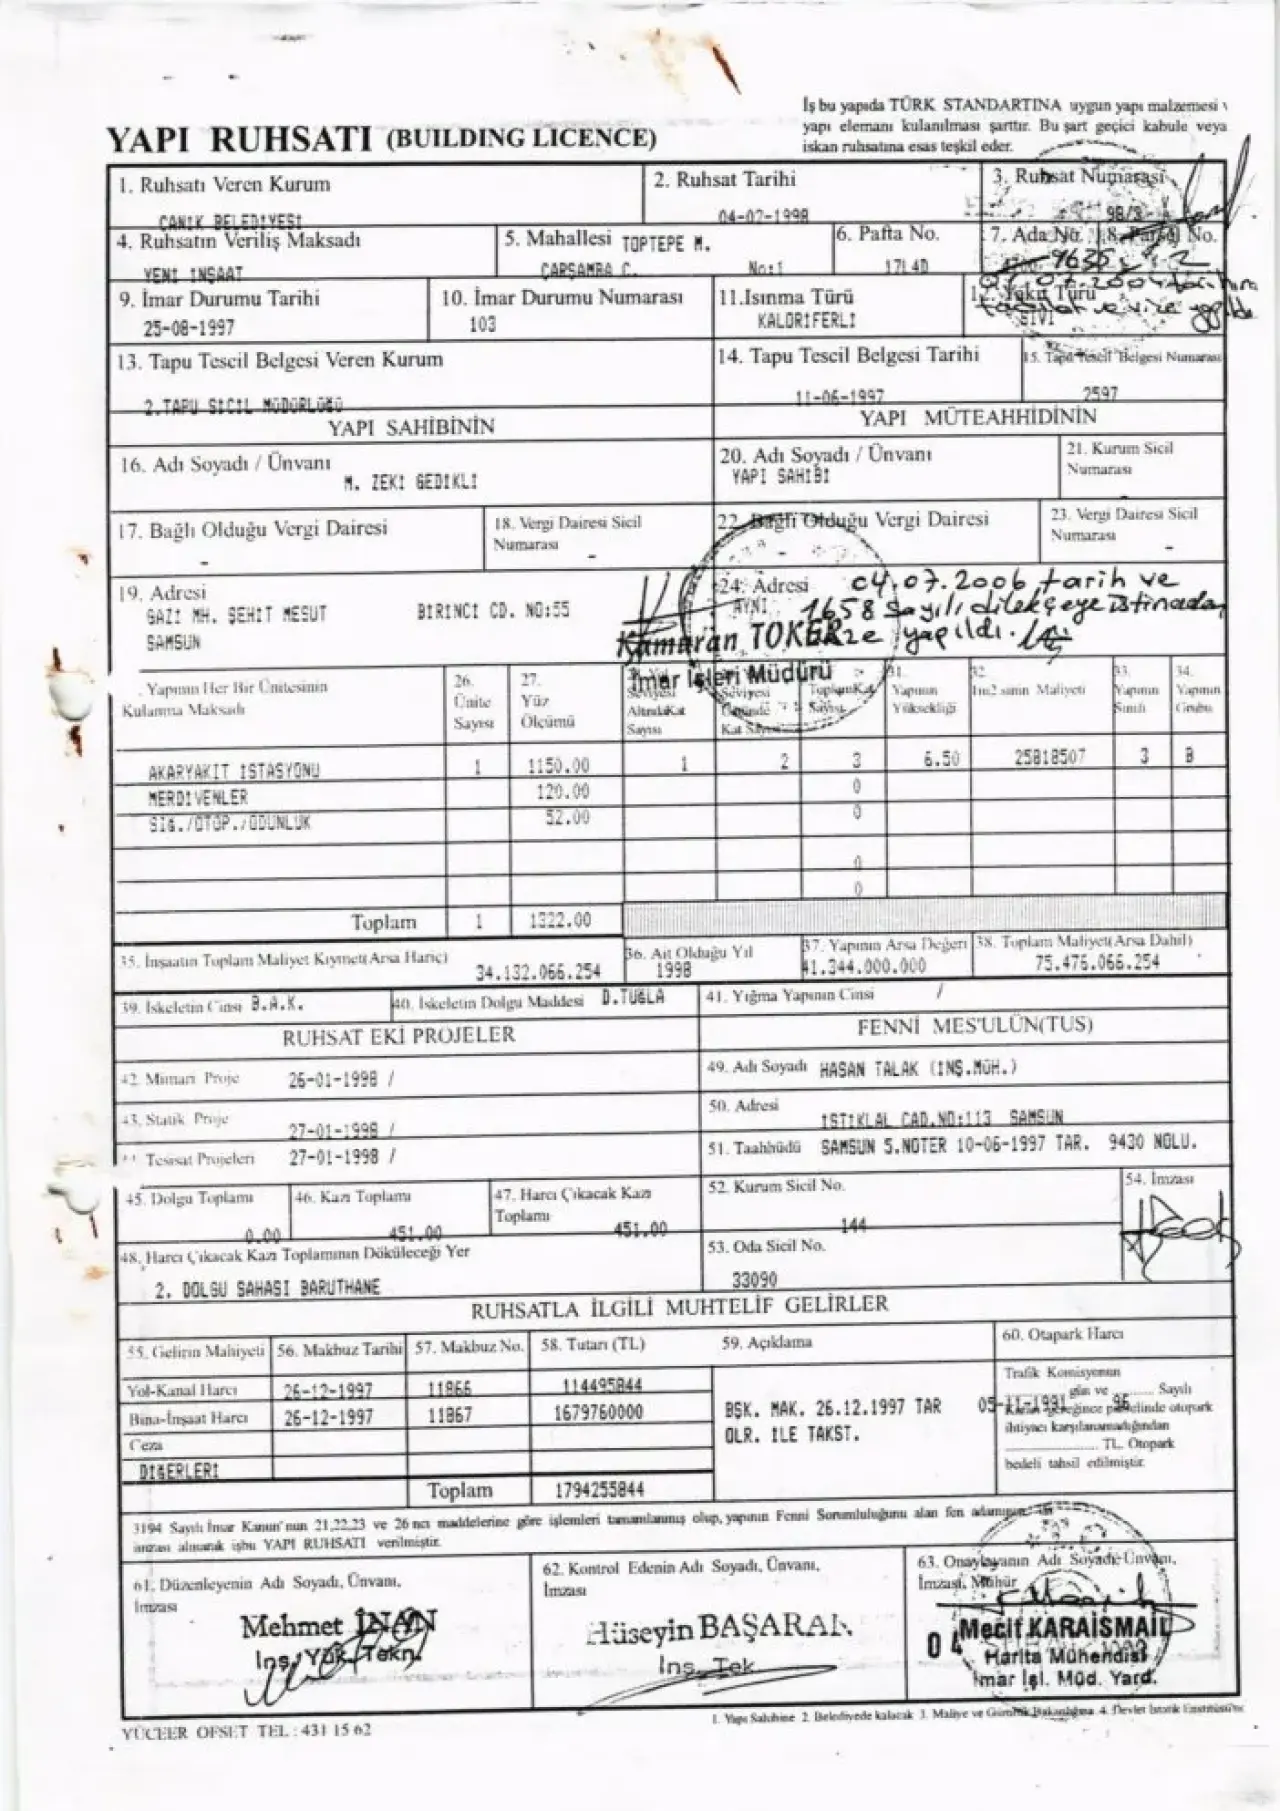 İş bu yapıda TÜRK STANDARTINA uygun yapı malzemesi
yapı elemanı kulanılması şarttır. Bu şart geçici kabule veya
iskan ruhsatına esas teşkil eder.
YAPI RUHSATI (BUILDING LICENCE)
1. Ruhsatı Veren Kurum
CANİK BELEDİYESİ
2. Ruhsat Tarihi
04-02-1998
3. Ruhsat Numarası
98/3
4. Ruhsatın Veriliş Maksadı
YENİ İNŞAAT
5. Mahallesi TOPTEPE M.
ÇARŞAMBA C. No:1
6. Pafta No.
17L4D
7. Ada No. 8. Parsel No.
9635 2
07.07.2004 tarihim
tadilat ve vize yapıldı
9. İmar Durumu Tarihi
25-08-1997
10. İmar Durumu Numarası
103
11.Isınma Türü
KALORİFERLİ
12. Yakıt Türü
SIVI
13. Tapu Tescil Belgesi Veren Kurum
2.TAPU SİCİL MÜDÜRLÜĞÜ
14. Tapu Tescil Belgesi Tarihi
11-06-1997
15. Tapu Tescil Belgesi Numarası
2597
YAPI SAHİBİNİN
YAPI MÜTEAHHİDİNİN
16. Adı Soyadı / Ünvanı
M. ZEKİ GEDİKLİ
20. Adı Soyadı / Ünvanı
YAPI SAHİBİ
21. Kurum Sicil
Numarası
-
17. Bağlı Olduğu Vergi Dairesi
-
18. Vergi Dairesi Sicil
Numarası -
22. Bağlı Olduğu Vergi Dairesi
-
23. Vergi Dairesi Sicil
Numarası -
19. Adresi
GAZİ MH. ŞEHİT MESUT BİRİNCİ CD. NO:55
SAMSUN
24. Adresi
AYNI
04.07.2006 tarih ve
1658 sayılı dilekçeye istinaden
vize yapıldı.
Kamuran TOKER
İmar İşleri Müdürü
Yapının Her Bir Ünitesinin
Kulanma Maksadı
26.
Ünite
Sayısı
27.
Yüz
Ölçümü
Seviyesi
AltındaKat
Sayısı
Seviyesi
Üstünde
Kat Sayısı
ToplamKat
Sayısı
31.
Yapının
Yüksekliği
32
1m2 sinin Maliyeti
33.
Yapının
Sınıfı
34.
Yapının
Grubu
AKARYAKIT İSTASYONU 1 1150.00 1 2 3 6.50 25818507 3 B
MERDİVENLER 120.00 0
SIĞ./OTOP./ODUNLUK 52.00 0
0
0
Toplam 1 1322.00
35. İnşaatın Toplam Maliyet Kıymeti(Arsa Hariç)
34.132.066.254
36. Ait Olduğu Yıl
1998
37. Yapının Arsa Değeri
41.344.000.000
38. Toplam Maliyeti(Arsa Dahil)
75.476.066.254
39. İskeletin Cinsi B.A.K.
40. İskeletin Dolgu Maddesi D.TUĞLA
41. Yığma Yapının Cinsi /
RUHSAT EKİ PROJELER
FENNİ MES'ULÜN(TUS)
42. Mimari Proje 26-01-1998 /
43. Statik Proje 27-01-1998 /
44. Tesisat Projeleri 27-01-1998 /
49. Adı Soyadı HASAN TALAK (İNŞ.MÜH.)
50. Adresi
İSTİKLAL CAD.NO:113 SAMSUN
51. Taahhüdü SAMSUN 5.NOTER 10-06-1997 TAR. 9430 NOLU.
45. Dolgu Toplamı
0.00
46. Kazı Toplamı
451.00
47. Harcı Çıkacak Kazı
Toplamı
451.00
52. Kurum Sicil No.
144
54. İmzası
48. Harcı Çıkacak Kazı Toplamının Döküleceği Yer
2. DOLGU SAHASI BARUTHANE
53. Oda Sicil No.
33090
RUHSATLA İLGİLİ MUHTELİF GELİRLER
55. Gelirin Mahiyeti 56. Makbuz Tarihi 57. Makbuz No. 58. Tutarı (TL) 59. Açıklama 60. Otapark Harcı
Yol-Kanal Harcı 26-12-1997 11866 114495844
Bina-İnşaat Harcı 26-12-1997 11867 1679760000
Ceza
DİĞERLERİ
Toplam 1794255844
BŞK. MAK. 26.12.1997 TAR
OLR. İLE TAKST.
Trafik Komisyonun
05-11-1991 gün ve 96 Sayılı
Kararı gereğince parselinde otopark
ihtiyacı karşılanamadığından
TL. Otopark
bedeli tahsil edilmiştir.
3194 Sayılı İmar Kanun'nun 21,22,23 ve 26 ncı maddelerine göre işlemleri tamamlanmış olup, yapının Fenni Sorumluluğunu alan fen adamının
imzası alınarak işbu YAPI RUHSATI verilmiştir.
61. Düzenleyenin Adı Soyadı, Ünvanı,
İmzası
Mehmet İNAN
İnş. Yük. Tekn.
62. Kontrol Edenin Adı Soyadı, Ünvanı,
İmzası
Hüseyin BAŞARAN
İnş. Tek.
63. Onaylayanın Adı Soyadı, Ünvanı,
İmzası, Mühür
04
Mecit KARAİSMAİL
Harita Mühendisi
İmar İşl. Müd. Yard.
YÜCEER OFSET TEL : 431 15 62
1. Yapı Sahibine 2. Belediyede kalacak 3. Maliye ve Gümrük Bakanlığına 4. Devlet İstatik Enstitüsü'ne